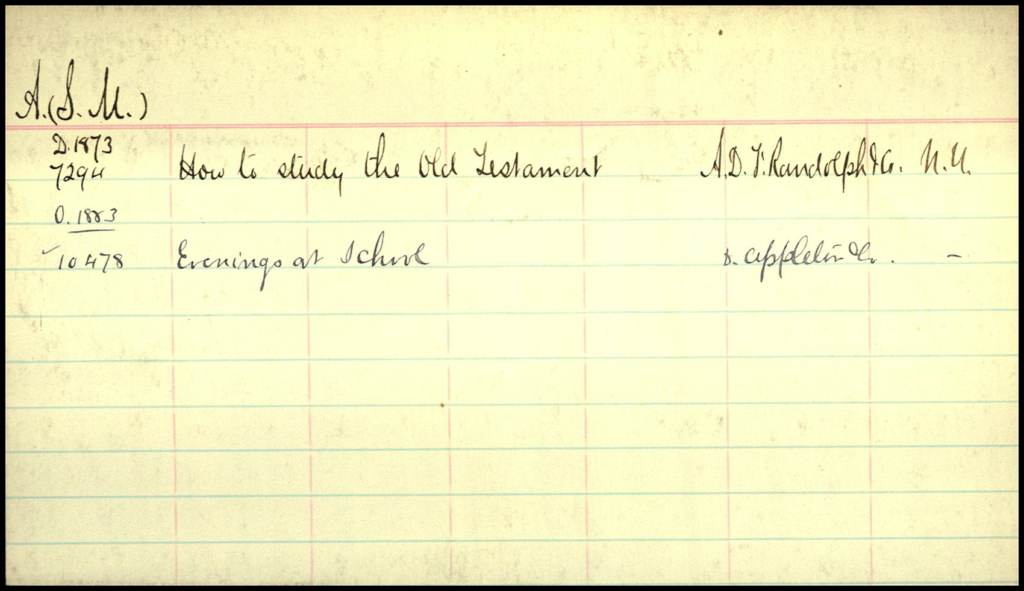 A. (S. M.)
D. 1873
7294 How to study the Old Testament A. D. F. Randolph & Co. N. Y.
O. 1883
✓10478 Evenings at School D. Appleton & Co. –